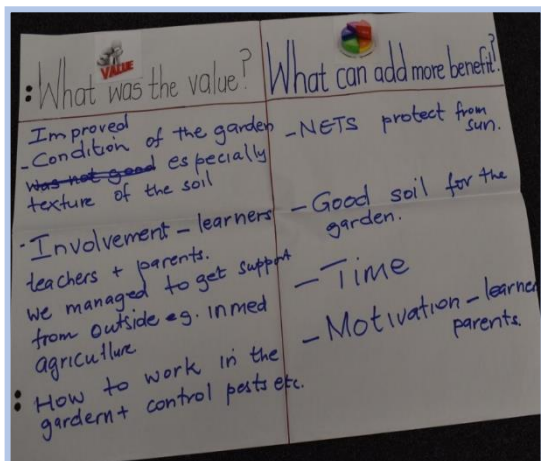 VALUE
: What was the value?
Improved
- Condition of the garden
was not good especially
texture of the soil
- Involvement - learners
teachers + parents.
we managed to get support
from outside eg. inmed
agricutlure
: How to work in the
gardern + control pests etc.
What can add more benefit?
- NETS protect from
sun.
- Good soil for the
garden.
- Time
- Motivation - learne
parents.